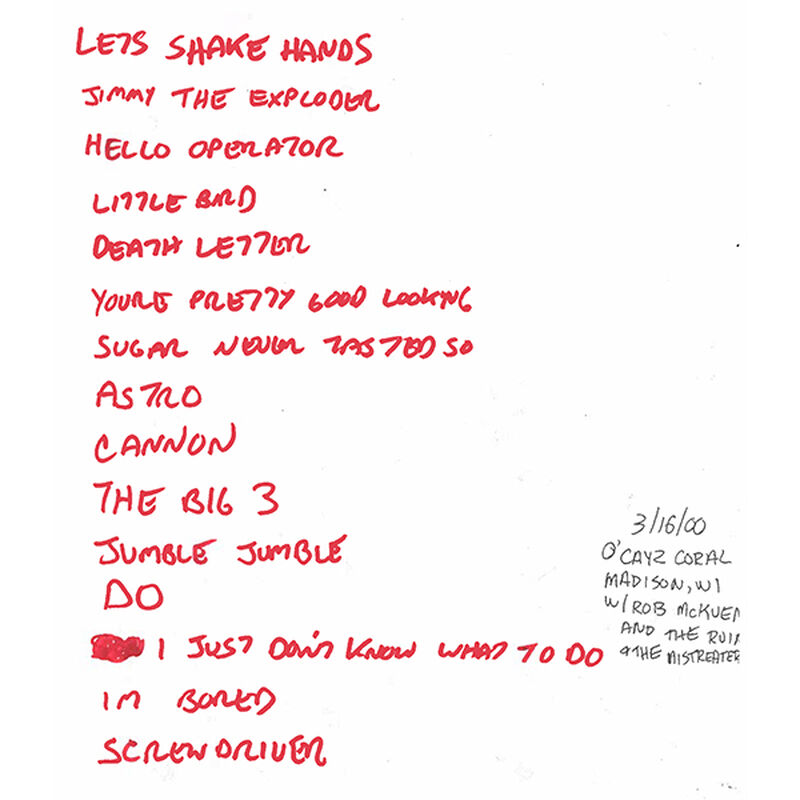 LETS SHAKE HANDS
JIMMY THE EXPLODER
HELLO OPERATOR
LITTLE BIRD
DEATH LETTER
YOURE PRETTY GOOD LOOKING
SUGAR NEVER TASTED SO
ASTRO
CANNON
THE BIG 3
JUMBLE JUMBLE
DO
I JUST DON'T KNOW WHAT TO DO
IM BORED
SCREWDRIVER
3/16/00
O'CAYZ CORAL
MADISON, WI
W/ROB MCKUEN
AND THE RUI
&THE MISTREATER